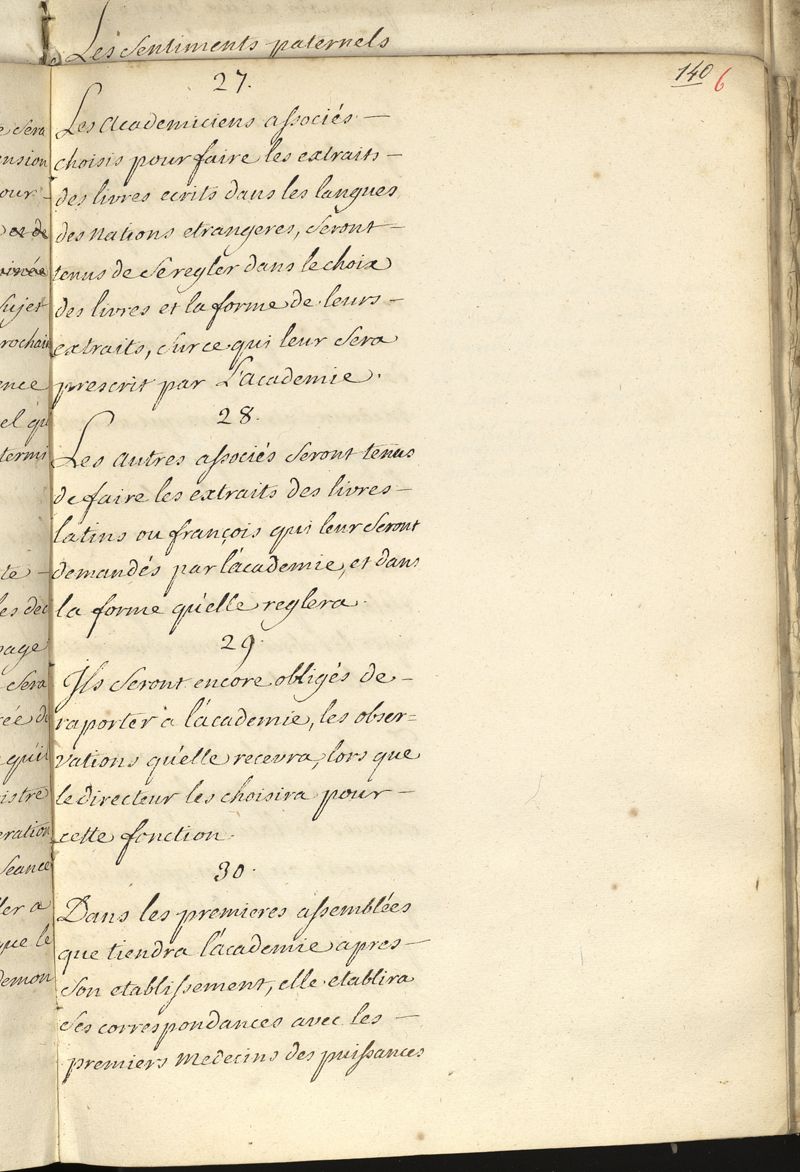 Les sentiments paternels
140 6
27.
Les academiciens associés
choisis pour faire les extraits
des livres ecrits dans les langues
des nations etrangeres, seront
tenus de se regler dans le choix
des livres et la forme de leurs
extraits, sur ce qui leur sera
prescrit par L'academie.
28.
Les autres associés seront tenus
de faire les extraits des livres
latins ou françois qui leur seront
demandés par l'academie, et dans
la forme qu'elle reglera.
29.
Ils seront encore obligés de
raporter a l'academie, les obser=
vations qu'elle recevra, lors que
le directeur les choisira pour
cette fonction.
30.
Dans les premieres assemblées
que tiendra l'academie apres
son etablissement, elle etablira
ses correspondances avec les
premiers medecins des puissances